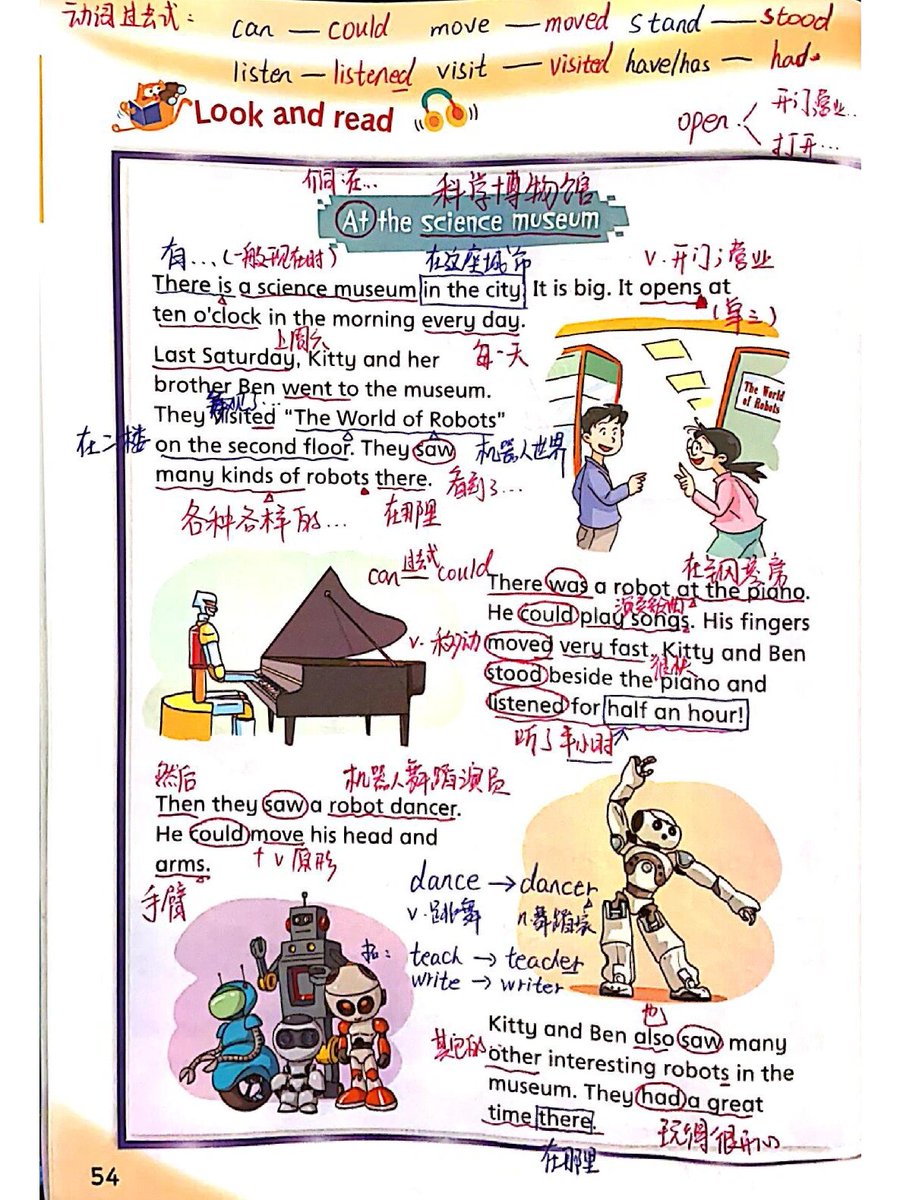 动词过去式：
can — could move — moved stand — stood
listen — listened visit — visited have/has — had
Look and read
open
开门；营业…
打开…
介词:在… 科学博物馆
At the science museum
有…(一般现在时) 在这座城市 v. 开门；营业
There is a science museum in the city. It is big. It opens at
(单三)
ten o'clock in the morning every day.
上周六
Last Saturday, Kitty and her
每一天
brother Ben went to the museum.
They visited "The World of Robots"
在二楼
on the second floor. They saw
机器人世界
many kinds of robots there.
看到了…
各种各样的… 在那里
The World
of Robots
can 过去式 could
在钢琴席
There was a robot at the piano.
演奏歌曲
He could play songs. His fingers
v. 移动
moved very fast. Kitty and Ben
很快
stood beside the piano and
listened for half an hour!
听了半小时
然后 机器人舞蹈演员
Then they saw a robot dancer.
He could move his head and
+ v 原形
arms.
手臂
dance → dancer
v. 跳舞 n. 舞蹈家
拓： teach → teacher
write → writer
也
Kitty and Ben also saw many
其它的…
other interesting robots in the
museum. They had a great
time there.
玩得很开心
在那里
54